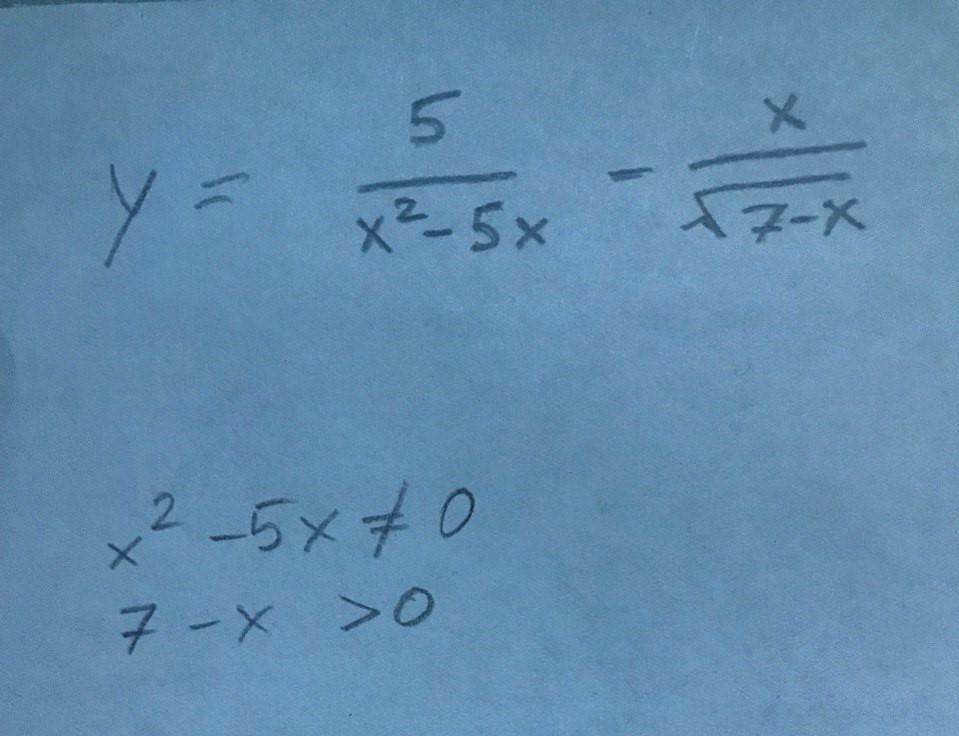 y = 5/(x² - 5x) - x/√(7-x)
x² - 5x ≠ 0
7 - x > 0